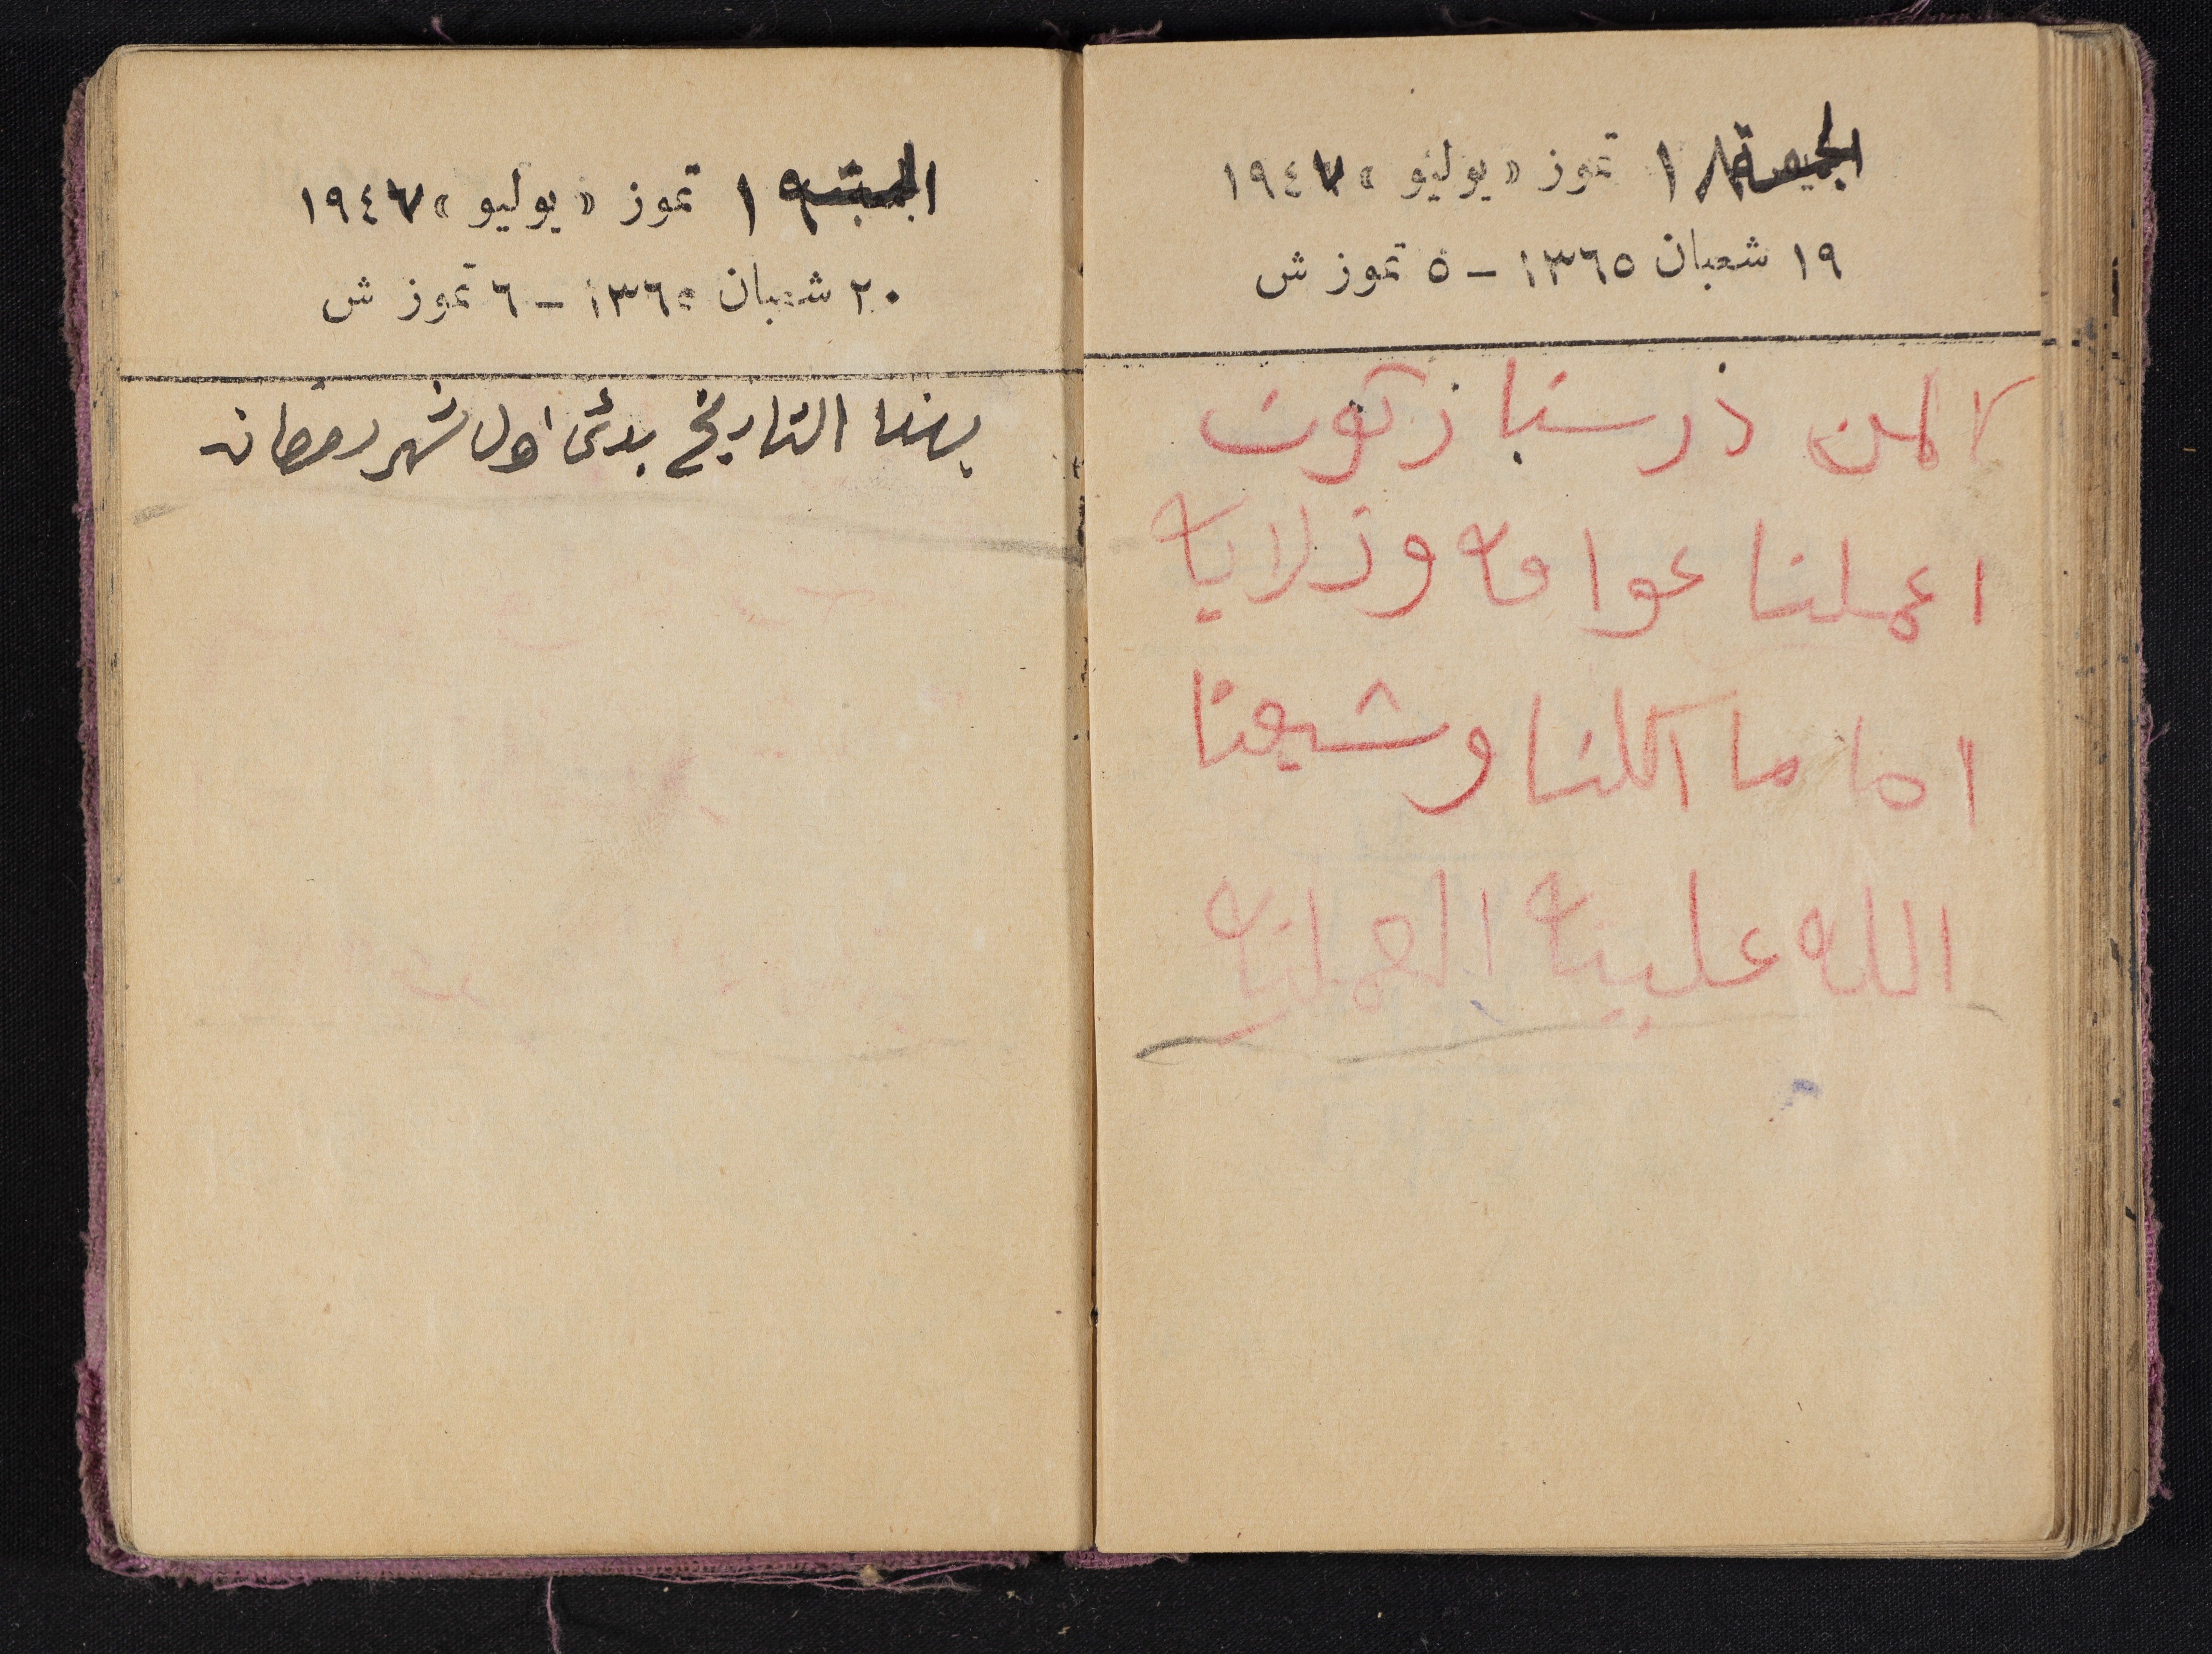 الجمعة ١٨ تموز «يوليو» ١٩٤٧
١٩ شعبان ١٣٦٥ - ٥ تموز ش
ذرسنا زكوت
اعملنا عوامه وزلابيه
اما ما اكلنا وشبعنا
الله علينه
السبت ١٩ تموز «يوليو» ١٩٤٧
٢٠ شعبان ١٣٦٥ - ٦ تموز ش
بهذا التاريخ بدئ اول شهر رمضان